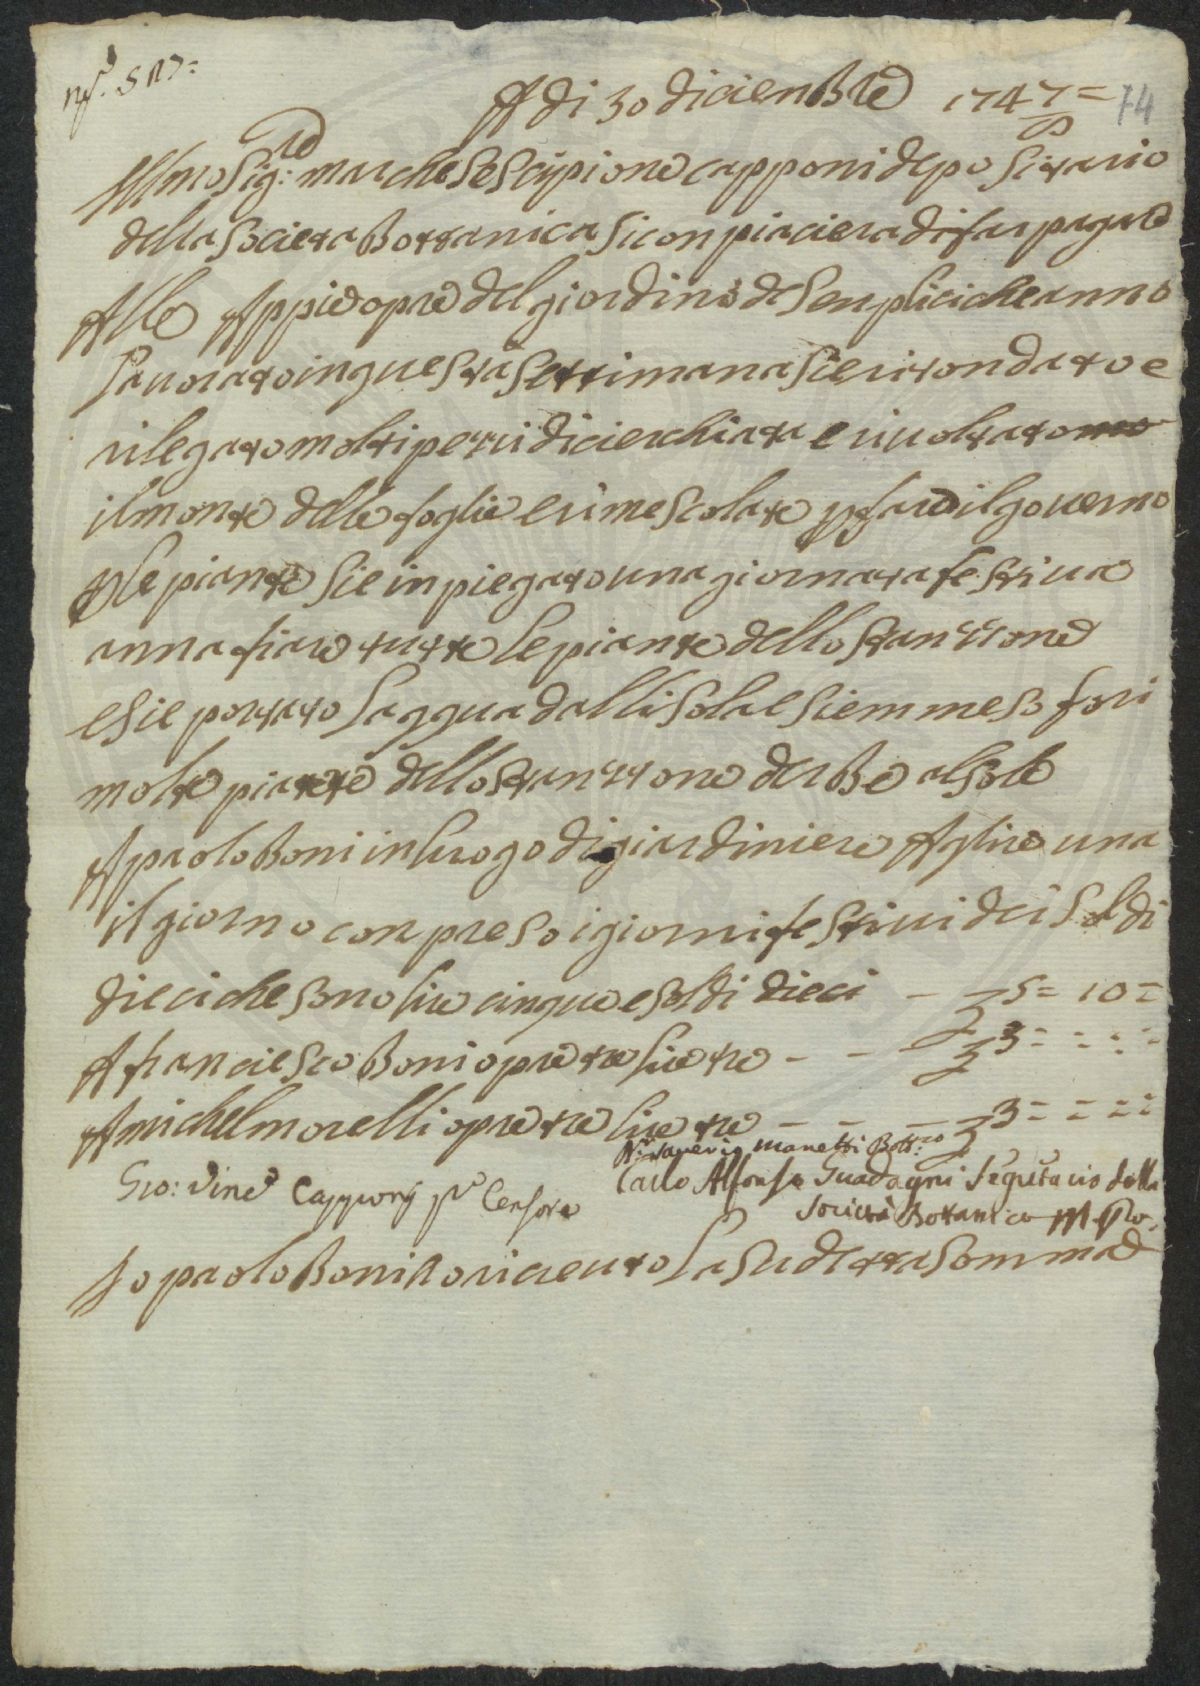 N.º 517=
A di 30 diciembre 1747= 74
Ill.mo Sig.re marchese Scipione Capponi depositario
della Societa Bottanica si conpiaciera di far pagare
Alle Appie opre del giardino de Senplici che anno
lavorato in questa settimana si e ritondato e
rilegato molti pezzi di cierchiata e rivoltato
il monte delle foglie e rimescolate p fare il governo
p le piante si e inpiegato una giornata festiva
annafiare tutte le piante dello stanzzone
e si e portato laqqua dallisola e si e mmeso fori
molte piante dello stanzzone derbe al sole
A paolo Boni in luogo di giardiniere A lire una
il giorno conpreso i giorni festivi dei soldi
dieci che sono lire cinque e soldi dieci - £ 5= 10=
A franciesco Boni opre tre lire tre - - - £ 3= = = =
A michel morelli opre tre lire tre - - - £ 3= = = =
Saverio Manetti Bott.co
Gio: Vinc.o Capponi p.o Censore
Carlo Alfonso Guadagni Segretario della
Società Botanica M. Pro.
Io paolo Boni o riceuto la sudetta somma